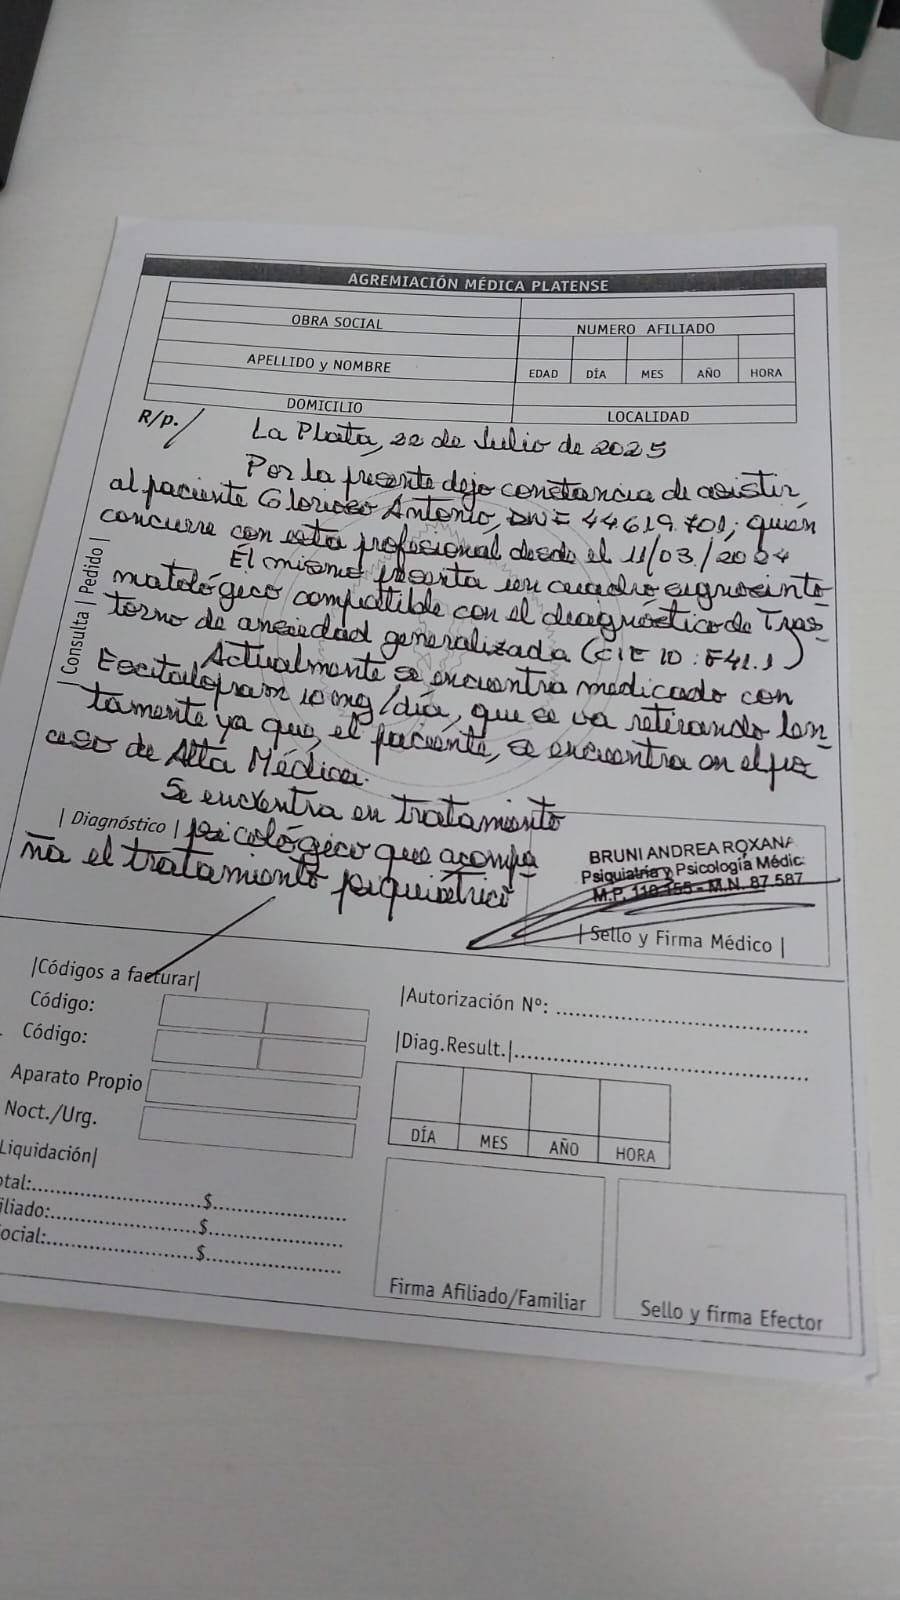 AGREMIACIÓN MÉDICA PLATENSE
OBRA SOCIAL
NUMERO AFILIADO
APELLIDO y NOMBRE
EDAD DÍA MES AÑO HORA
DOMICILIO
LOCALIDAD
R/p.
La Plata, 22 de Julio de 2025
Por la presente dejo constancia de asistir
al paciente Glorioso Antonio, DNI= 44619.701, quien
concurre con esta profesional desde el 11/03/2024
El mismo presenta un cuadro signosinto-
matológico compatible con el diagnóstico de Tras-
torno de ansiedad generalizada (CIE 10: F41.1)
Actualmente se encuentra medicado con
Escitalopram 10 mg/día, que se va retirando len-
tamente ya que, el paciente, se encuentra en el pro
ceso de Alta Médica.
Se encuentra en tratamiento
psicológico que acompa
ña el tratamiento psiquiátrico
| Consulta | Pedido |
| Diagnóstico |
BRUNI ANDREA ROXANA
Psiquiatría y Psicología Médic
M.P. 110.155 - M.N. 87.587
| Sello y Firma Médico |
|Códigos a facturar|
Código:
Código:
Aparato Propio
Noct./Urg.
Liquidación|
otal: $
iliado: $
ocial: $
|Autorización Nº:
|Diag.Result.|
DÍA MES AÑO HORA
Firma Afiliado/Familiar
Sello y firma Efector